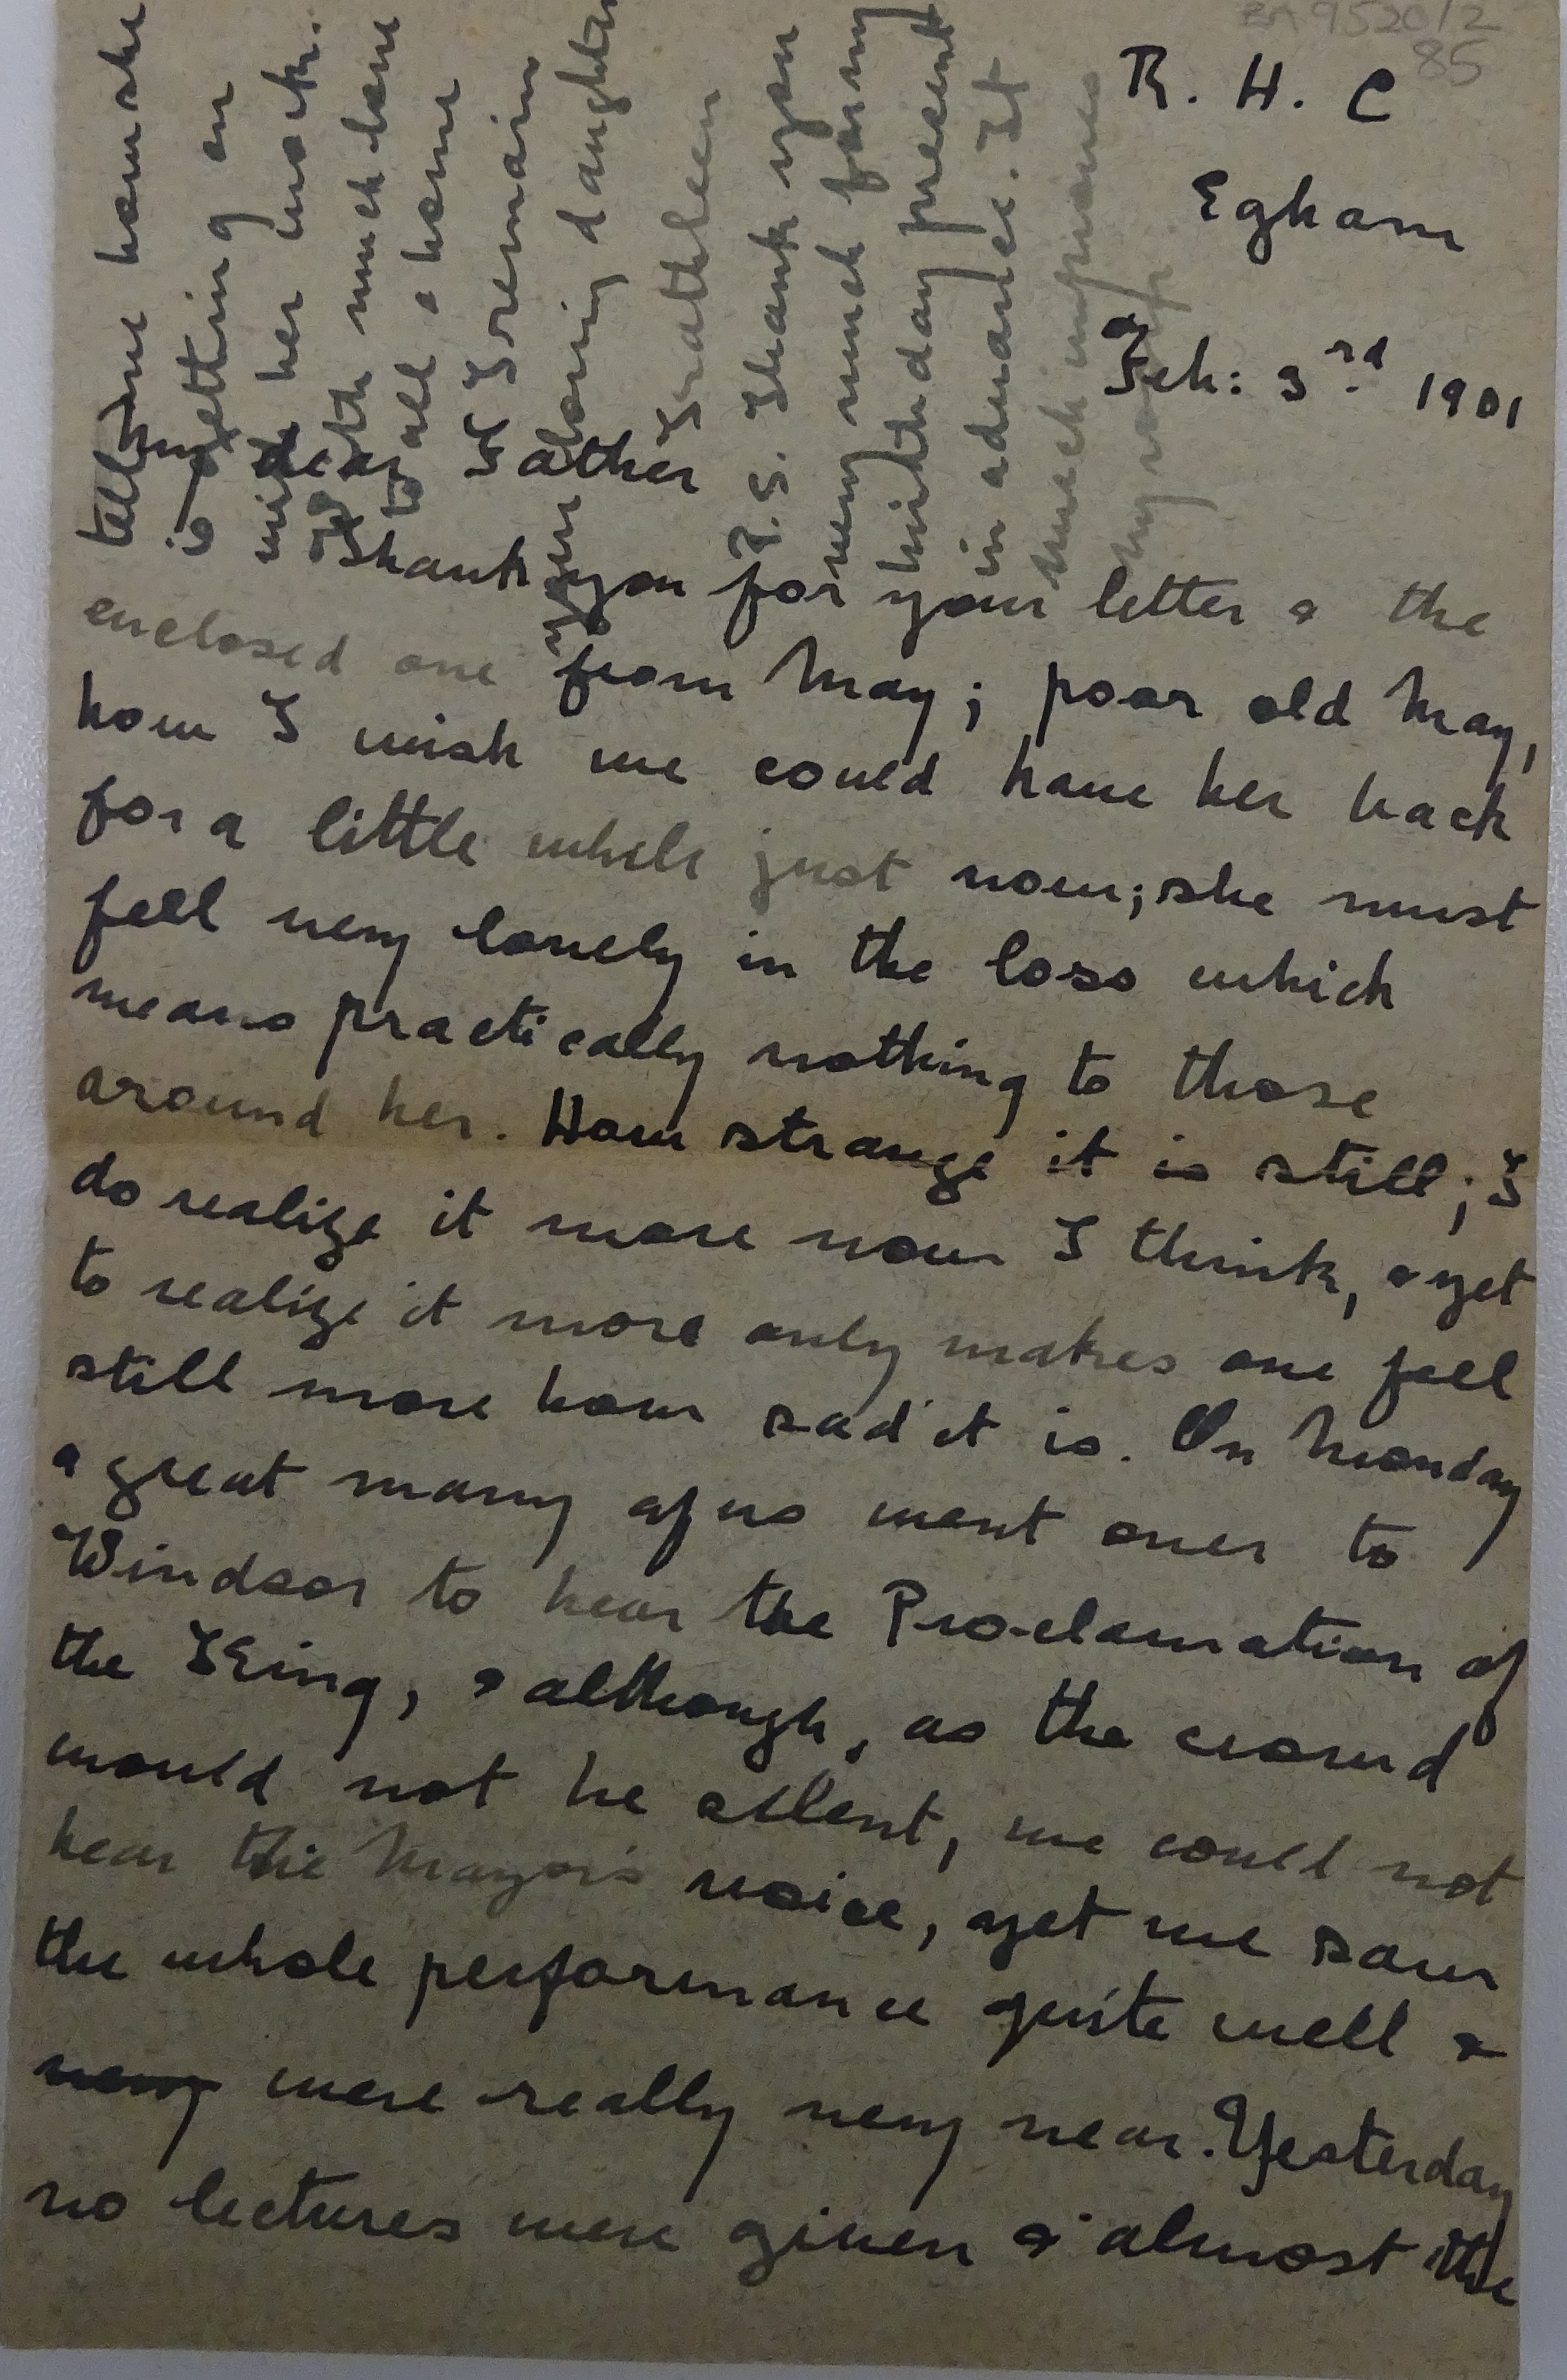 BA 9520/2
85
R. H. C
Egham
Feb: 3rd 1901
My dear Father
Thank you for your letter & the
enclosed one from May; poor old May,
how I wish we could have her back
for a little while just now; she must
feel very lonely in the loss which
means practically nothing to those
around her. How strange it is still; I
do realize it more now I think, & yet
to realize it more only makes one feel
still more how sad it is. On Monday
a great many of us went over to
Windsor to hear the Proclamation of
the King, & although, as the crowd
would not be silent, we could not
hear the Mayor's voice, yet we saw
the whole performance quite well &
very were really very near. Yesterday
no lectures were given & almost the
tell me how she
is getting on
with her work.
With much love
to all at home
I remain
your loving daughter
Kathleen
P.S. Thank you
very much for my
birthday present
in advance. It
much improves
my room